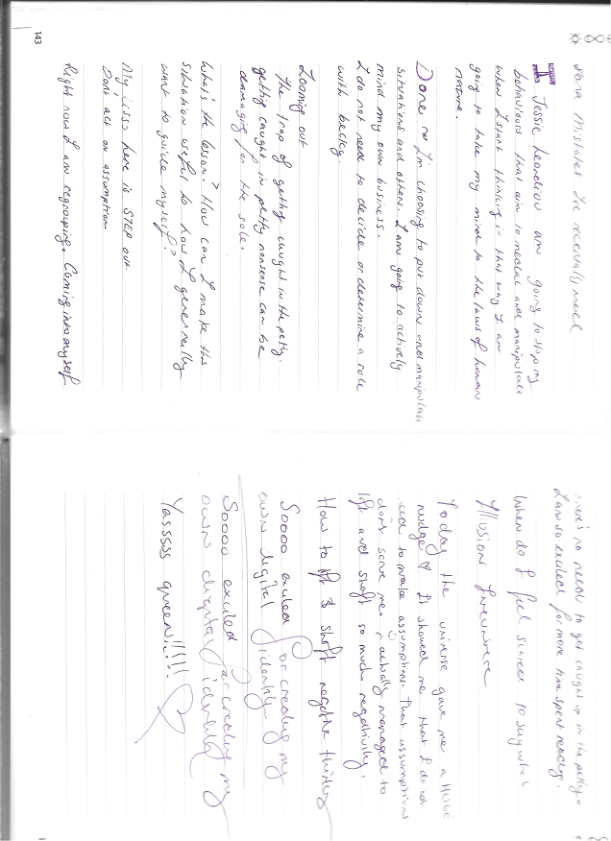 143
mistakes I've recently made
I Jessie am going to stop my
behaviours that aim to and manipulate
when I start thinking in this way I am
going to take my mind to the laws of human
nature.
Done I'm choosing to put down and manipulate
situations and others. I am going to actively
mind my own business.
I do not need to decide or determine a role
with becky.
Zooming out
The trap of getting caught in the petty.
getting caught in petty nonsense can be
damaging for the sole.
What's the lesson? How can I make this
situation useful to how I generally
want to guide myself?
My lesson here is STEP out.
Dont act on assumption
Right now I am regrouping. Coming into myself
there's no need to get caught up in the petty.
I am so excited for more time spent reading.
When do I feel scared to say which
illusions I
Today the universe gave me a
nudge It showed me that I do not
need to make assumptions. That assumptions
don't serve me. I actually managed to
lift and shift so much negativity.
How to lift & shift negative thinking
Soooo excited for creating my
own digital identity
Soooo excited for creating my
own digital identity
Yasssss queen!!!!!